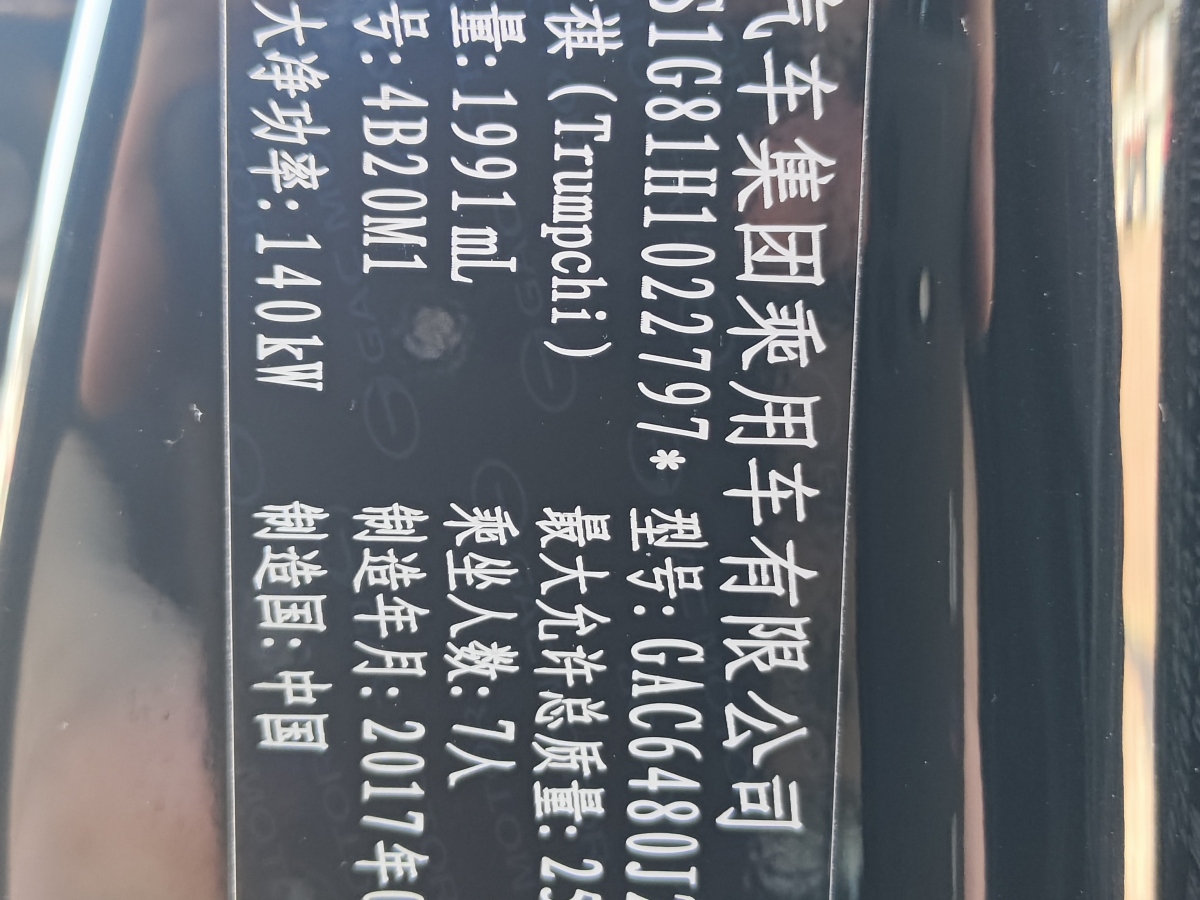 汽车集团乘用车有限公司
S1G81H1022797* 型号:GAC6480J
祺(Trumpchi) 最大允许总质量:25
量:1991mL 乘坐人数:7人
号:4B20M1 制造年月:2017年0
大净功率:140kW 制造国:中国